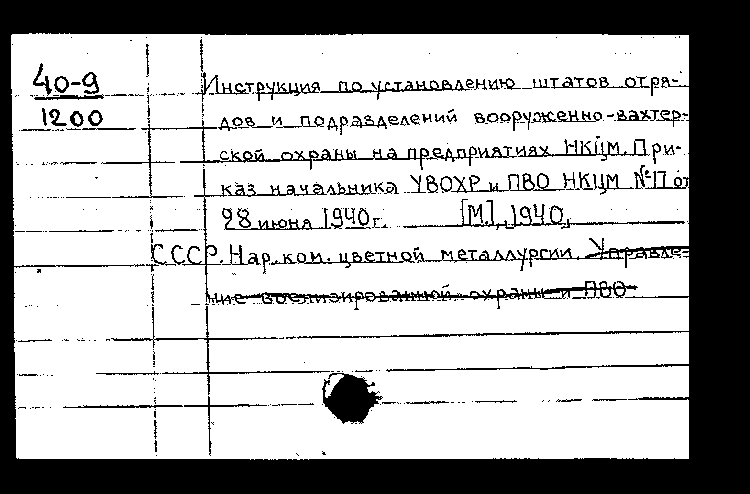 40-9
1200
Инструкция по установлению штатов отря-
дов и подразделений вооруженно-вахтер-
ской охраны на предприятиях НКЦМ. При-
каз начальника УВОХР и ПВО НКЦМ № 17 от
28 июня 1940 г. [М.], 1940,
СССР. Нар. ком. цветной металлургии. Управле-
ние военизированной охраны и ПВО